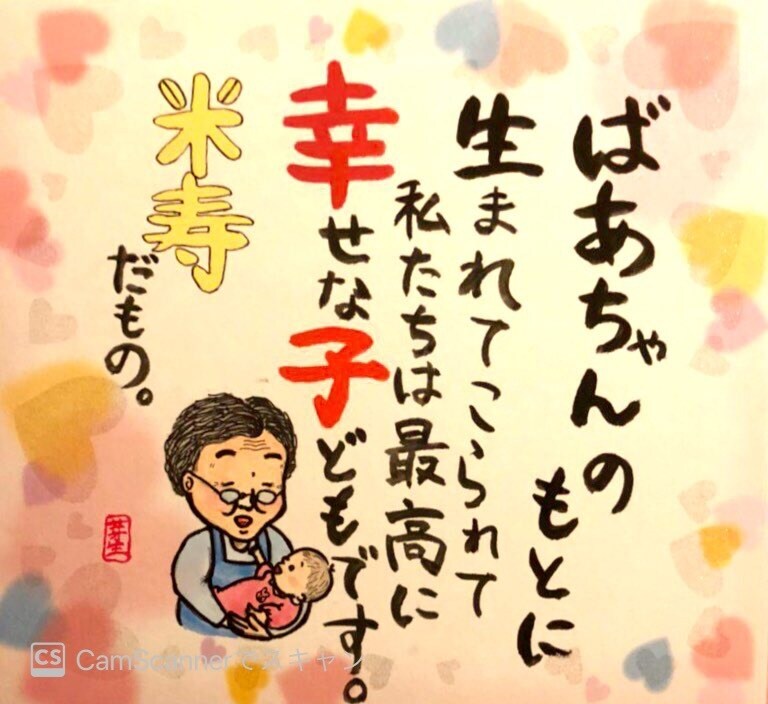 ばあちゃんの
もとに
生まれてこられて
私たちは最高に
幸せな子どもです。
米寿
だもの。
CS CamScannerでスキャン